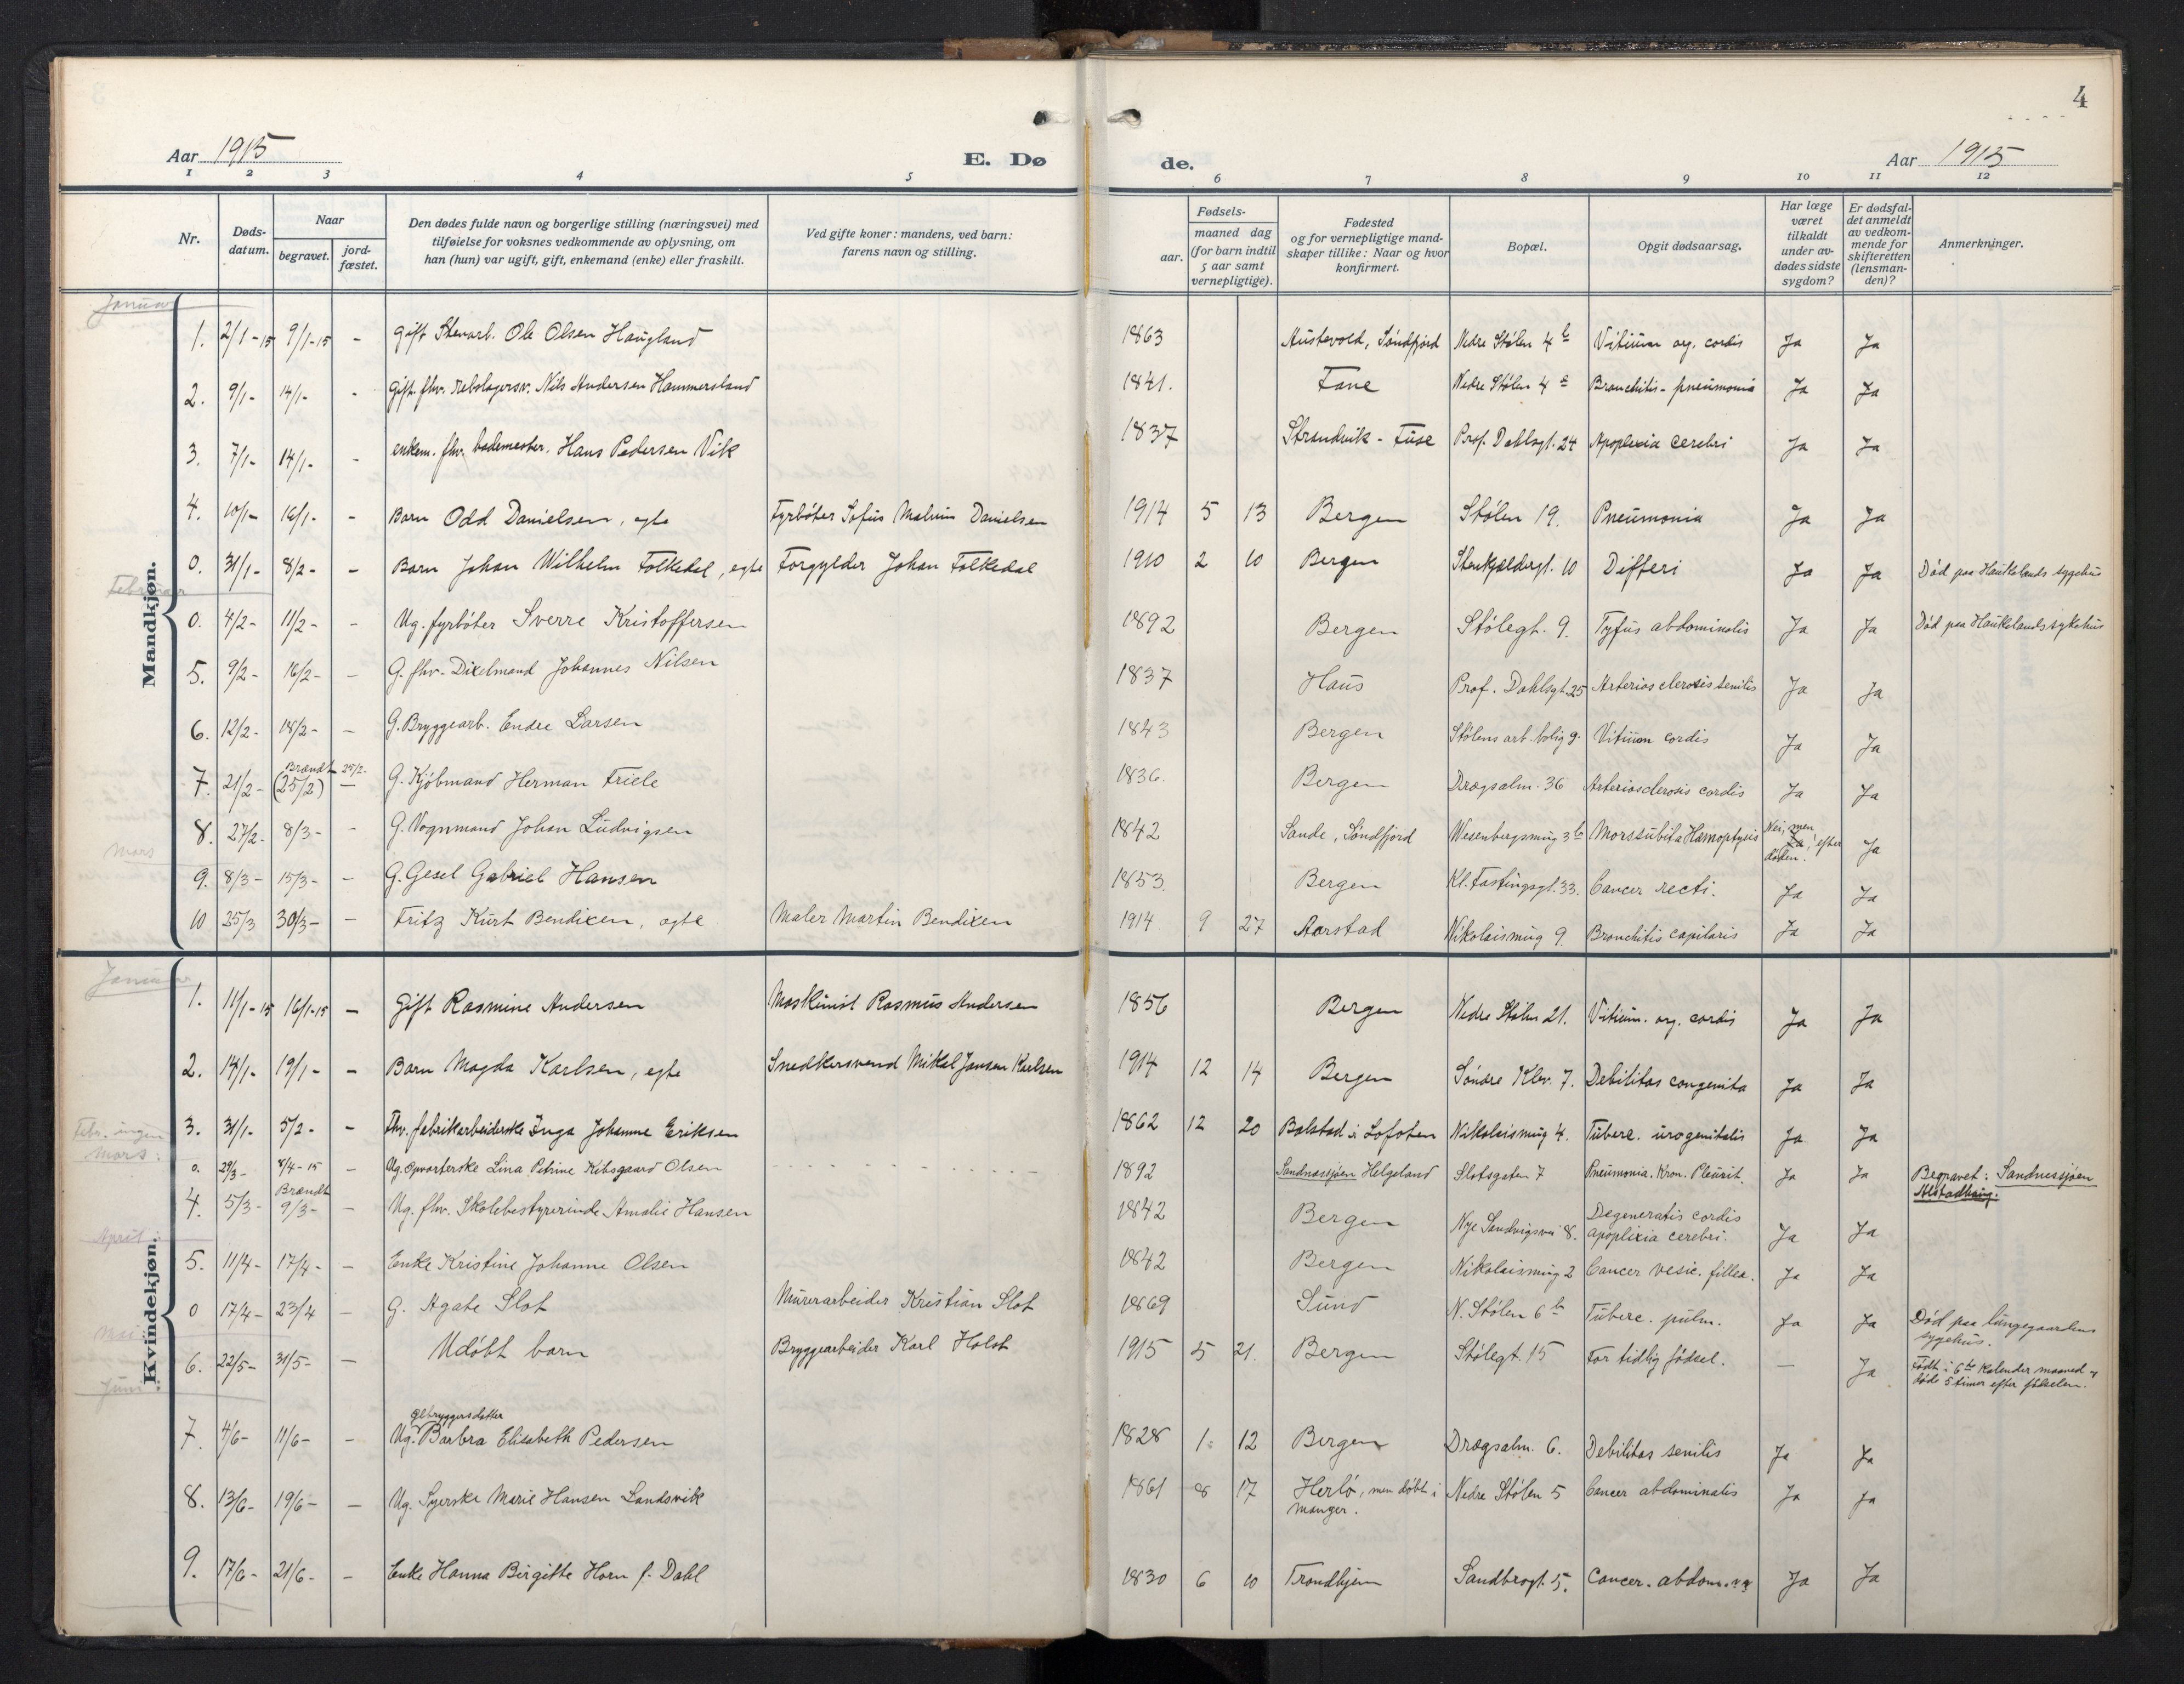 4
Aar 1915 E. Dø de. Aar 1915
1 2 3 4 5 6 7 8 9 10 11 12
Nr. Døds-datum. Naar begravet. jord-fæstet. Den dødes fulde navn og borgerlige stilling (næringsvei) med tilføielse for voksnes vedkommende av oplysning, om han (hun) var ugift, gift, enkemand (enke) eller fraskilt. Ved gifte koner: mandens, ved barn: farens navn og stilling. Fødsels- aar. maaned dag (for barn indtil 5 aar samt vernepligtige). Fødested og for vernepligtige mand-skaper tillike: Naar og hvor konfirmert. Bopæl. Opgit dødsaarsag. Har læge været tilkaldt under av-dødes sidste sygdom? Er dødsfal-det anmeldt av vedkom-mende for skifteretten (lensman-den)? Anmerkninger.
Mandkjøn.
Januar
1. 2/1-15 9/1-15 - Gift Stenarb. Ole Olsen Haugland 1863 Austevold, Søndfjord Nedre Stølen 4 b Vitium org. cordis Ja Ja
2. 9/1- 14/1- - Gift. fhv. rebslagersv. Nils Andersen Hammersland 1841. Fane Nedre Stølen 4 a Bronchitis-pneumonia Ja Ja
3. 7/1- 14/1- - enkem. fhv. bademester. Hans Pedersen Vik 1837 Strandvik - Fuse Prof. Dahlsgt. 24 Apoplexia cerebri Ja Ja
4. 10/1- 16/1- - Barn Odd Danielsen, egte Fyrbøter Sofus Malvin Danielsen 1914 5 13 Bergen Stølen 19. Pneumonia Ja Ja
0. 31/1- 8/2- - Barn Johan Wilhelm Folkedal, egte Forgylder Johan Folkedal 1910 2 10 Bergen Stenkjeldergt. 10 Difteri Ja Ja Død paa Haukelands sygehus
Februar
0. 4/2- 11/2- - Ug. fyrbøter Sverre Kristoffersen 1892 Bergen Stølegt. 9. Tyfus abdominalis Ja Ja Død paa Haukelands sykehus
5. 9/2- 16/2- - G. fhv. Dixelmand Johannes Nilsen 1837 Haus Prof. Dahlsgt. 25 Arteriosclerosis senilis Ja Ja
6. 12/2- 18/2- - G. Bryggearb. Endre Larsen 1843 Bergen Stølens arb. bolig 9. Vitium cordis Ja Ja
7. 21/2- Brændt (25/2) 25/2- G. Kjøbmand Herman Friele 1836. Bergen Dræggsalm. 36 Arteriosclerosis cordis Ja Ja
8. 27/2- 8/3- - G. Vognmand Johan Ludvigsen 1842 Sande, Søndfjord Wesenbergsmug 3 b Mors subita Hæmoptysis Nei, men Ja, efter døden. Ja
Mars
9. 8/3- 15/3- - G. Gesel Gabriel Hansen 1853. Bergen Kl. Fastingsgt. 33. Cancer recti. Ja Ja
10 25/3 30/3- - Fritz Kurt Bendixen, egte Maler Martin Bendixen 1914 9 27 Aarstad Nikolaismug 9. Bronchitis capilaris Ja Ja
Kvindekjøn.
Januar
1. 11/1-15 16/1-15 - Gift Rasmine Andersen Maskinist Rasmus Andersen 1856 Bergen Nedre Stølen 21. Vitium. org. cordis Ja Ja
2. 14/1- 19/1- - Barn Magda Karlsen, egte Snedkersvend Mikal Jansen Karlsen 1914 12 14 Bergen Søndre Klev. 7. Debilitas congenita Ja Ja
3. 31/1- 5/2- - Fhv. fabrikarbeiderske Inga Johanne Eriksen 1862 12 20 Balstad i Lofoten Nikolaismug 4. Tuberc. urogenitalis Ja Ja
Febr. ingen
Mars:
0. 29/3- 8/4-15 - Ug. Opvarterske Lina Petrine Kibsgaard Olsen 1892 Sandnessjøen Helgeland Slotsgaten 7 Pneumonia. Kron. Pleurit. Ja Ja Begravet: Sandnessjøen Alstadhaug.
4. 5/3- Brændt 9/3- - Ug. fhv. Skolebestyrerinde Amalie Hansen 1842 Bergen Nye Sandvigsvei 8. Degeneratis cordis apoplixia cerebri. Ja Ja
April:
5. 11/4- 17/4- - Enke Kristine Johanne Olsen 1842 Bergen Nikolaismug 2 Cancer vesic. fillea. Ja Ja
0 17/4- 23/4 - G. Agate Slot Murerarbeider Kristian Slot 1869 Sund N. Stølen 6 b Tuberc. pulm. Ja Ja Død paa Lungegaardens sygehus.
Mai:
6. 22/5- 31/5- - Udøbt barn Bryggearbeider Karl Holst 1915 5 21. Bergen Stølegt. 15 For tidlig fødsel. - Ja Født i 6te Kalender maaned og døde 5 timer efter fødselen.
Juni:
7. 4/6- 11/6- - Ug. ølbryggersdatter Barbra Elisabeth Pedersen 1828 1. 12 Bergen Dræggsalm. 6. Debilitas senilis Ja Ja
8. 13/6- 19/6- - Ug. Syerske Marie Hansen Landsvik 1861 8 17 Herlø, men døbt i Manger. Nedre Stølen 5 Cancer abdominalis Ja Ja
9. 17/6- 21/6- - Enke Hanna Birgitte Horn f. Dahl 1830 6 10 Trondhjem Sandbrogt. 5. Cancer. abdom. Ja Ja